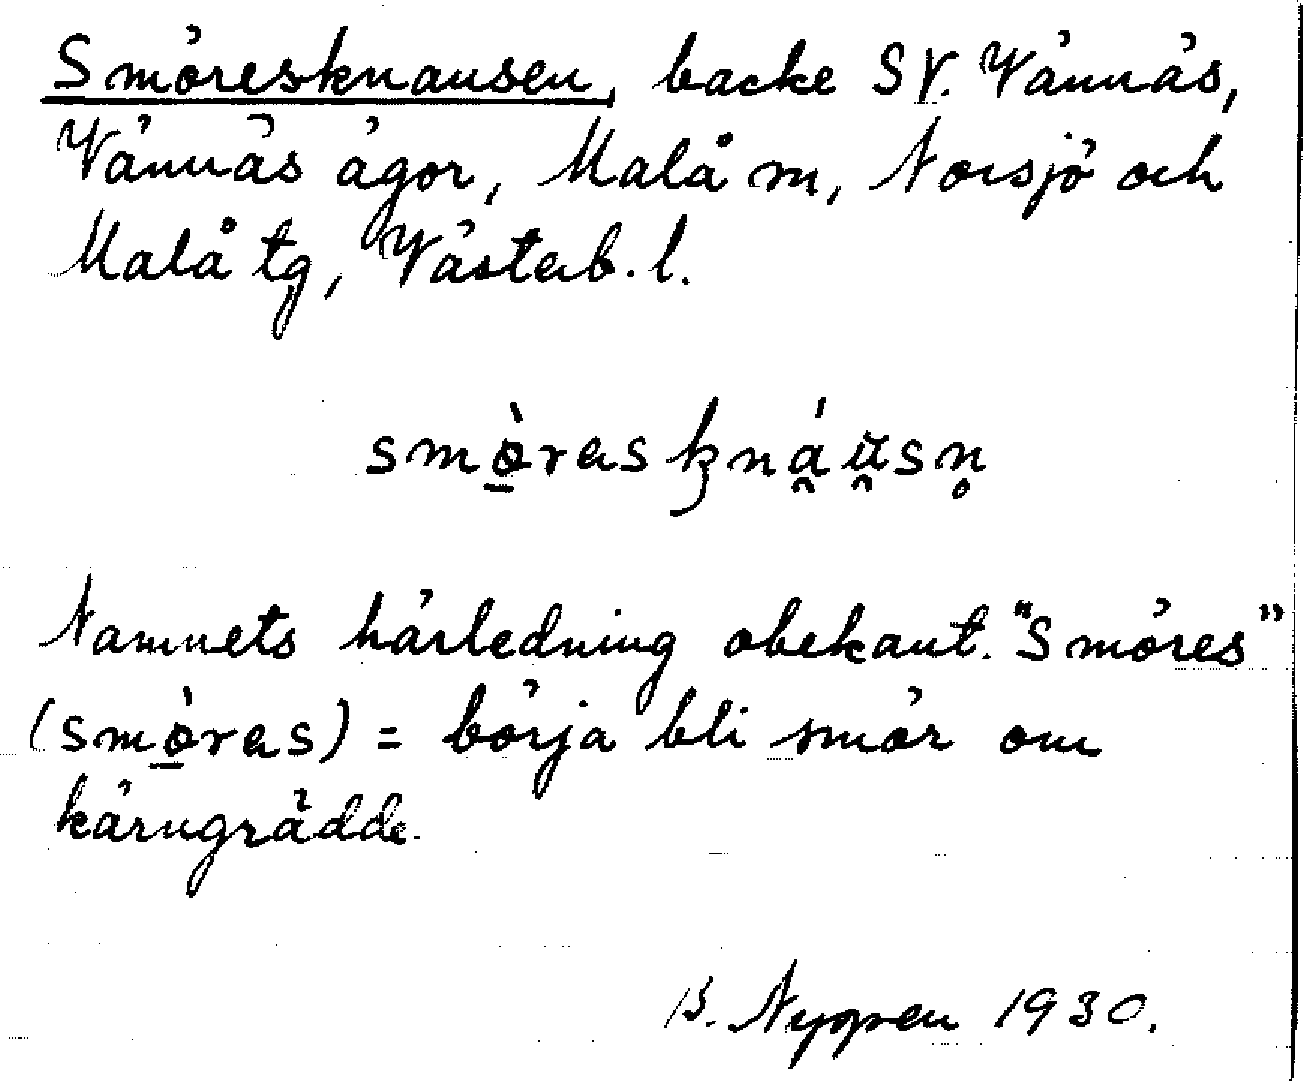 Smöresknausen, backe SV. Vännäs,
Vännäs ägor, Malå m, Norsjö och
Malå tg, Västerb. l.
smö̀resknáu̯sn̥
Namnets härledning obekant. "Smöres"
(smö̀res) = börja bli smör om
kärngrädde.
B. Nygren 1930.